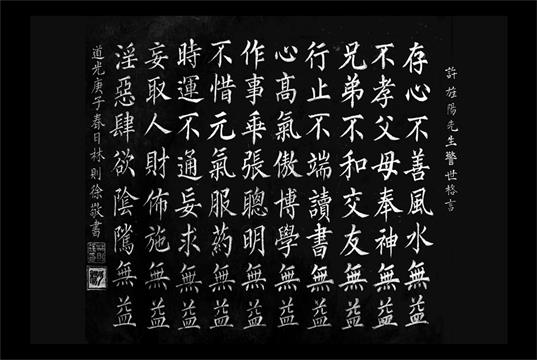 許旌陽先生警世格言
存心不善風水無益
不孝父母奉神無益
兄弟不和交友無益
行止不端讀書無益
心高氣傲博學無益
作事乖張聰明無益
不惜元氣服藥無益
時運不通妄求無益
妄取人財佈施無益
淫惡肆欲陰騭無益
道光庚子春日林則徐敬書